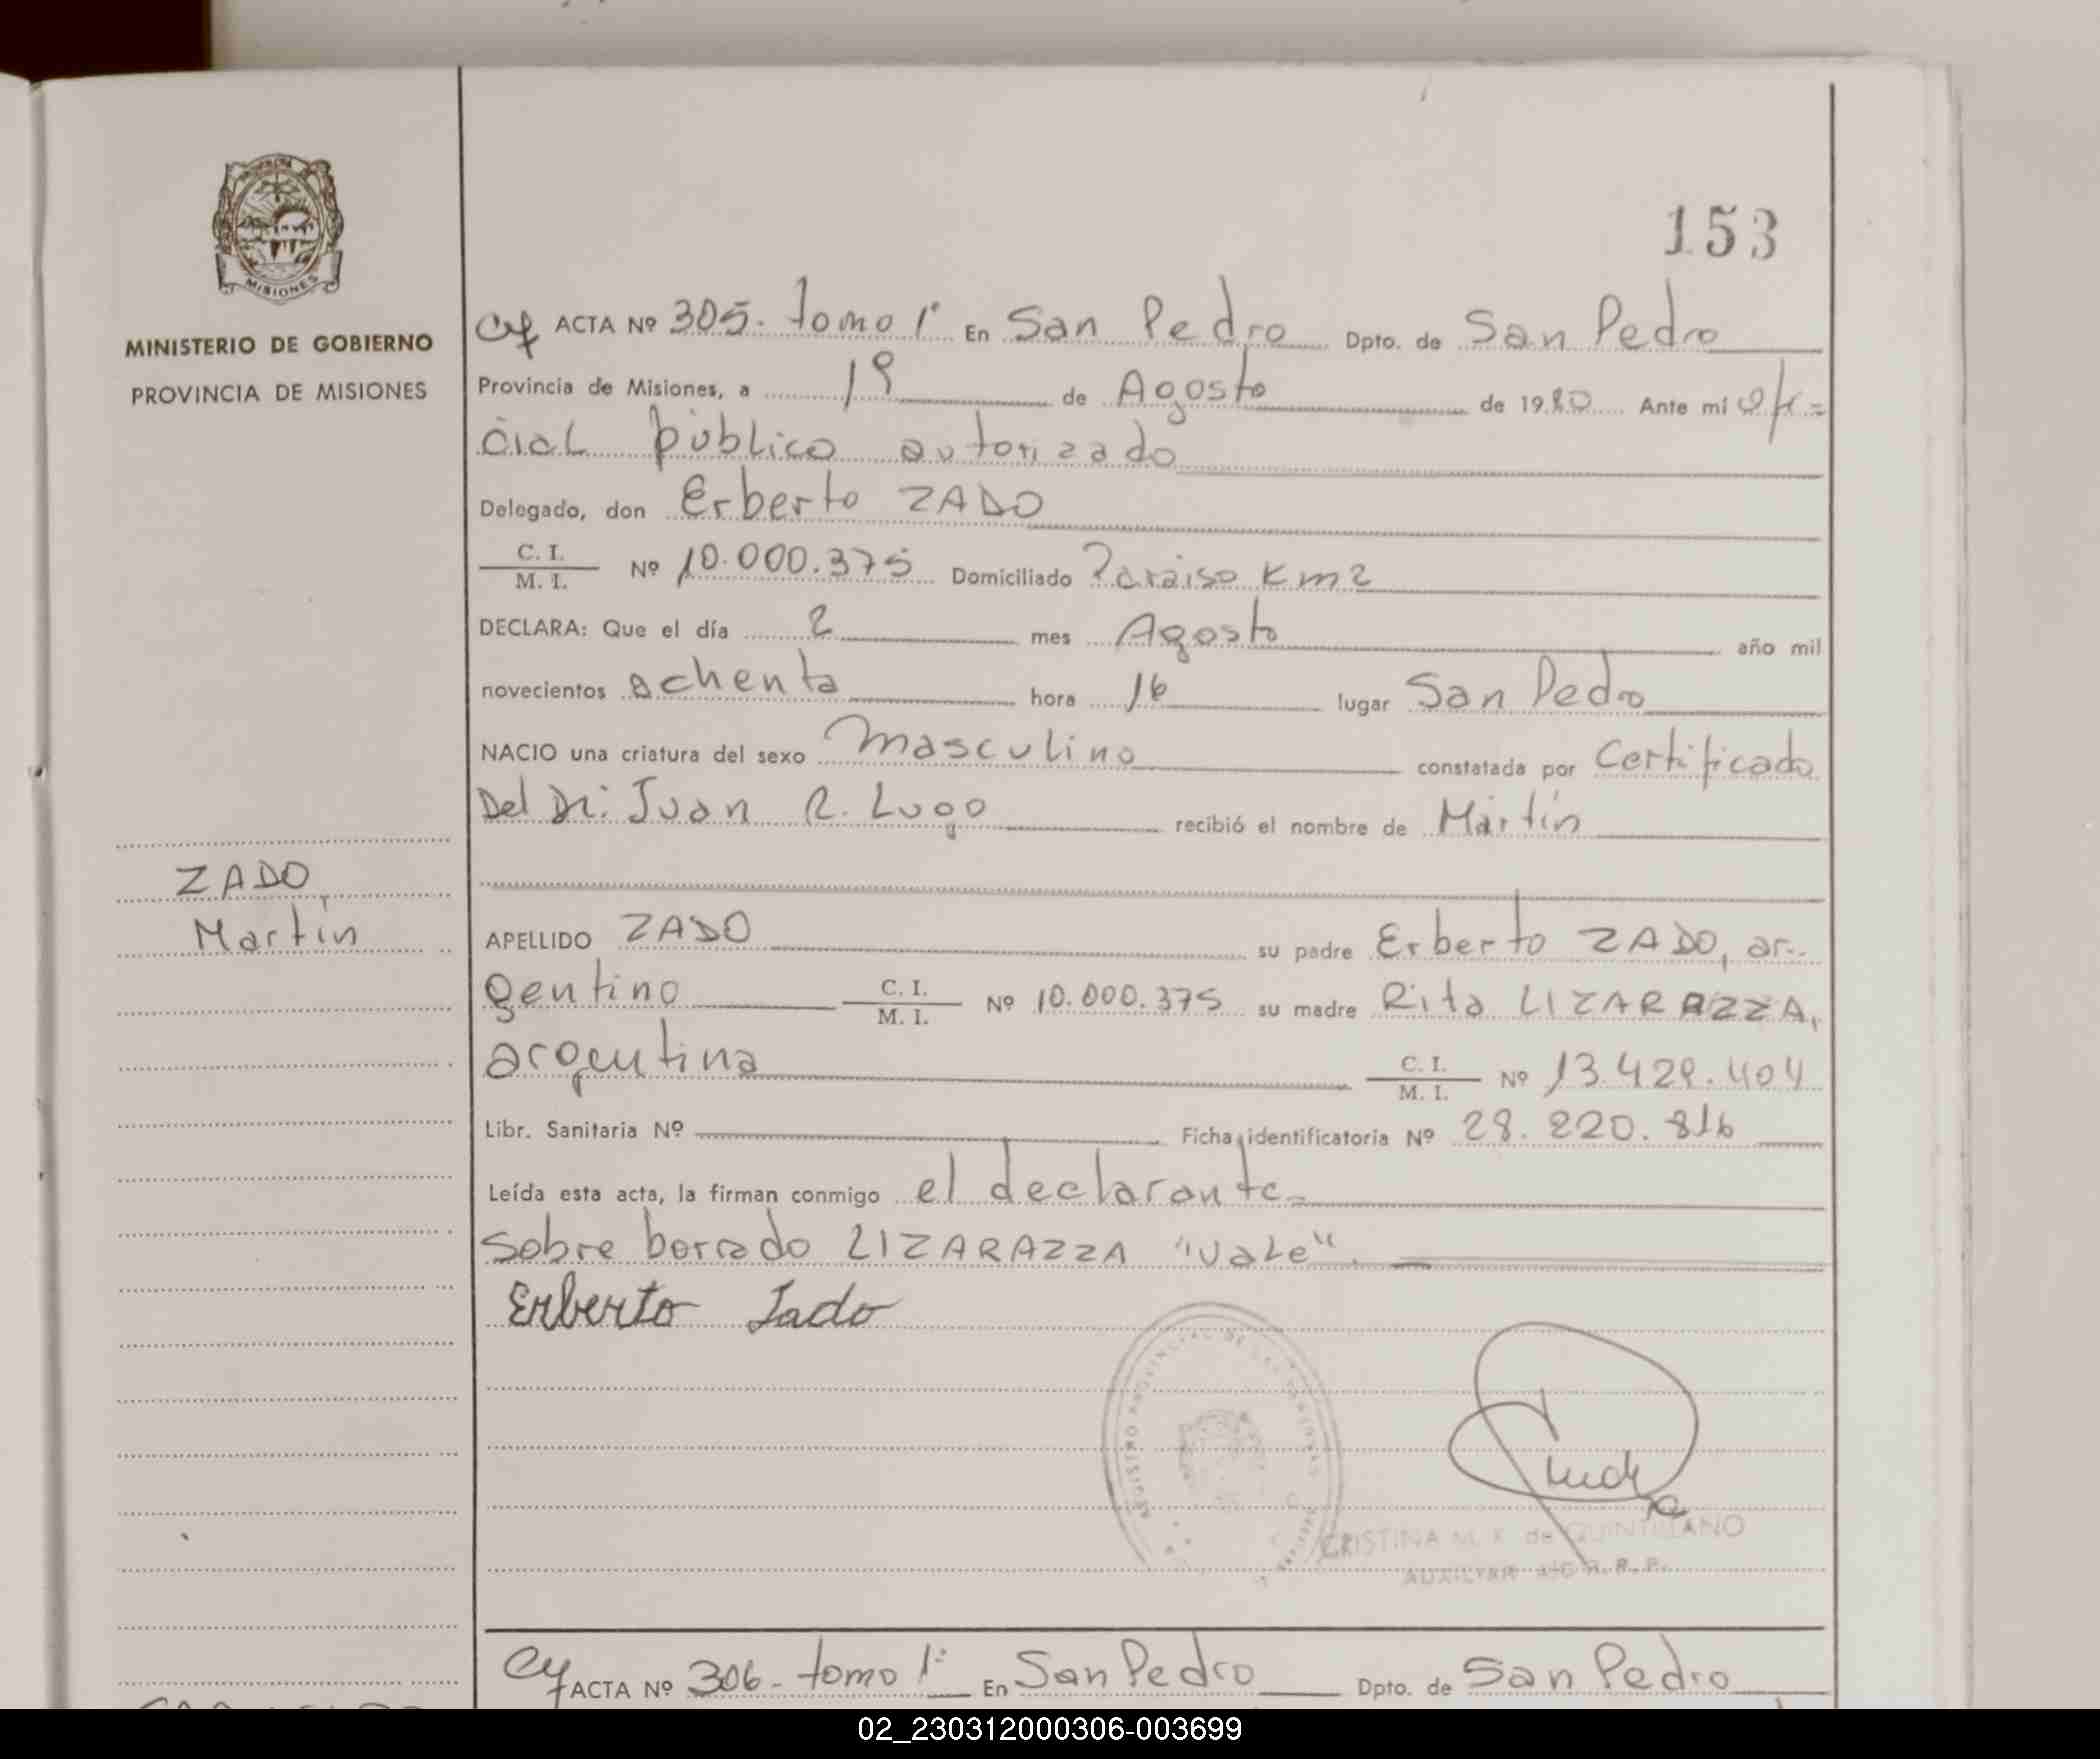 153
MISIONES
MINISTERIO DE GOBIERNO
PROVINCIA DE MISIONES
ZADO
Martín
ACTA Nº 305. tomo 1º En San Pedro Dpto. de San Pedro
Provincia de Misiones, a 19 de Agosto de 1980 Ante mí ofi=
cial público autorizado
Delegado, don Erberto ZADO
C. I. / M. I. Nº 10.000.375 Domiciliado Paraiso Km2
DECLARA: Que el día 2 mes Agosto año mil
novecientos ochenta hora 16 lugar San Pedro
NACIO una criatura del sexo masculino constatada por Certificado
Del Dr. Juan R. Lugo recibió el nombre de Martín
APELLIDO ZADO su padre Erberto ZADO, ar-
gentino C. I. / M. I. Nº 10.000.375 su madre Rita LIZARAZZA,
argentina C. I. / M. I. Nº 13.429.404
Libr. Sanitaria Nº Ficha identificatoria Nº 28.220.816
Leída esta acta, la firman conmigo el declarante=
Sobre borrado LIZARAZZA "vale".
Erberto Zado
REGISTRO PROVINCIAL DE LAS PERSONAS
CRISTINA M. F. de QUINTILIANO
AUXILIAR R. P. P.
ACTA Nº 306- tomo 1º En San Pedro Dpto. de San Pedro
02_230312000306-003699